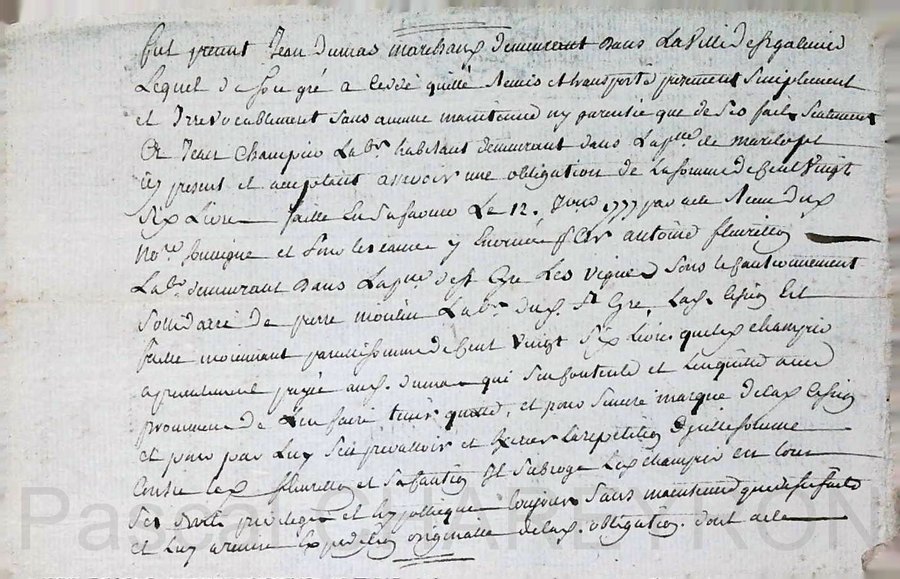 fut present Jean dumas marchand demeurant dans La ville de st galmier
Lequel de son gré a ceddé quitté Remis et transporté purement simplement
et Irrevocablement sans aucune maintenue ny garentie que de ses faits seulement
A Jean Champier Labr. habitant demeurant dans La psse de
icy present et acceptant assavoir une obligation de La somme de Cent Vingt
six Livres faitte En sa faveur Le 12. 1777 par acte Reçu dud
Nore. soussigné et sous les sceaux y Enoncés Par antoine fleurillon
Labr. demeurant dans La psse de st Cyr Les vignes sous le Cautionnement
solidaire de pierre moulin Labr. dud. st Cyr, Lad. Cession Est
faitte moyennant pareille somme de Cent Vingt six Livres que led champier
a presentement payé aud. dumas qui s'en contente et L'en quitte avec
promesse de L'en faire tenir quitte, et pour sureté marque de lad Cession
et pour par Luy s'en prevalloir et Exercer La repetition de pareille somme
Contre led fleurillon et sa Caution Il subroge Led champier en tous
ses droits privileges et hypotheques toujours sans maintenue que de ses faits
et Luy a remis Expedition originalle de lad. obligation. dont acte
Pascal CHAREYRON